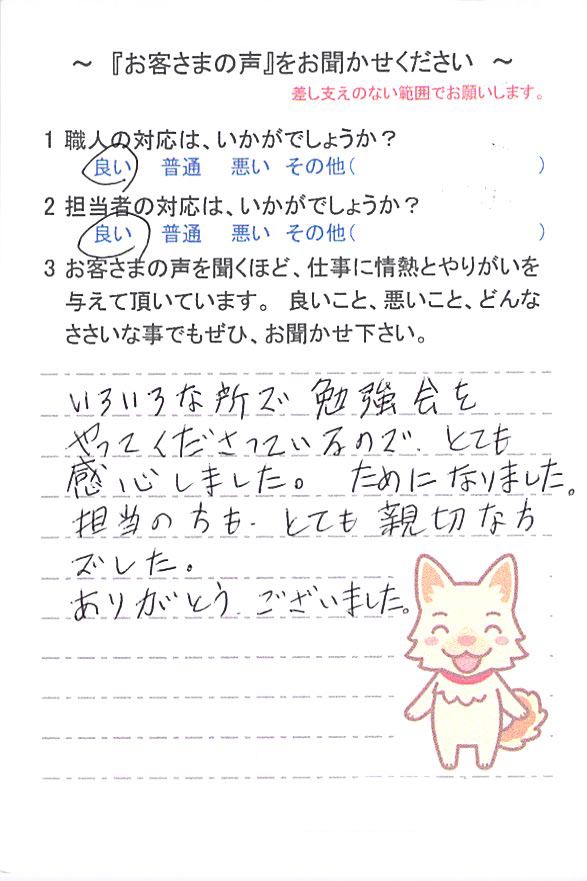 ～ 『お客さまの声』をお聞かせください ～
差し支えのない範囲でお願いします。
1 職人の対応は、いかがでしょうか？
良い 普通 悪い その他( )
2 担当者の対応は、いかがでしょうか？
良い 普通 悪い その他( )
3 お客さまの声を聞くほど、仕事に情熱とやりがいを
与えて頂いています。 良いこと、悪いこと、どんな
ささいな事でもぜひ、お聞かせ下さい。
いろいろな所で 勉強会を
やってくださっているので、とても
感心しました。 ためになりました。
担当の方も、とても親切な方
でした。
ありがとう ございました。